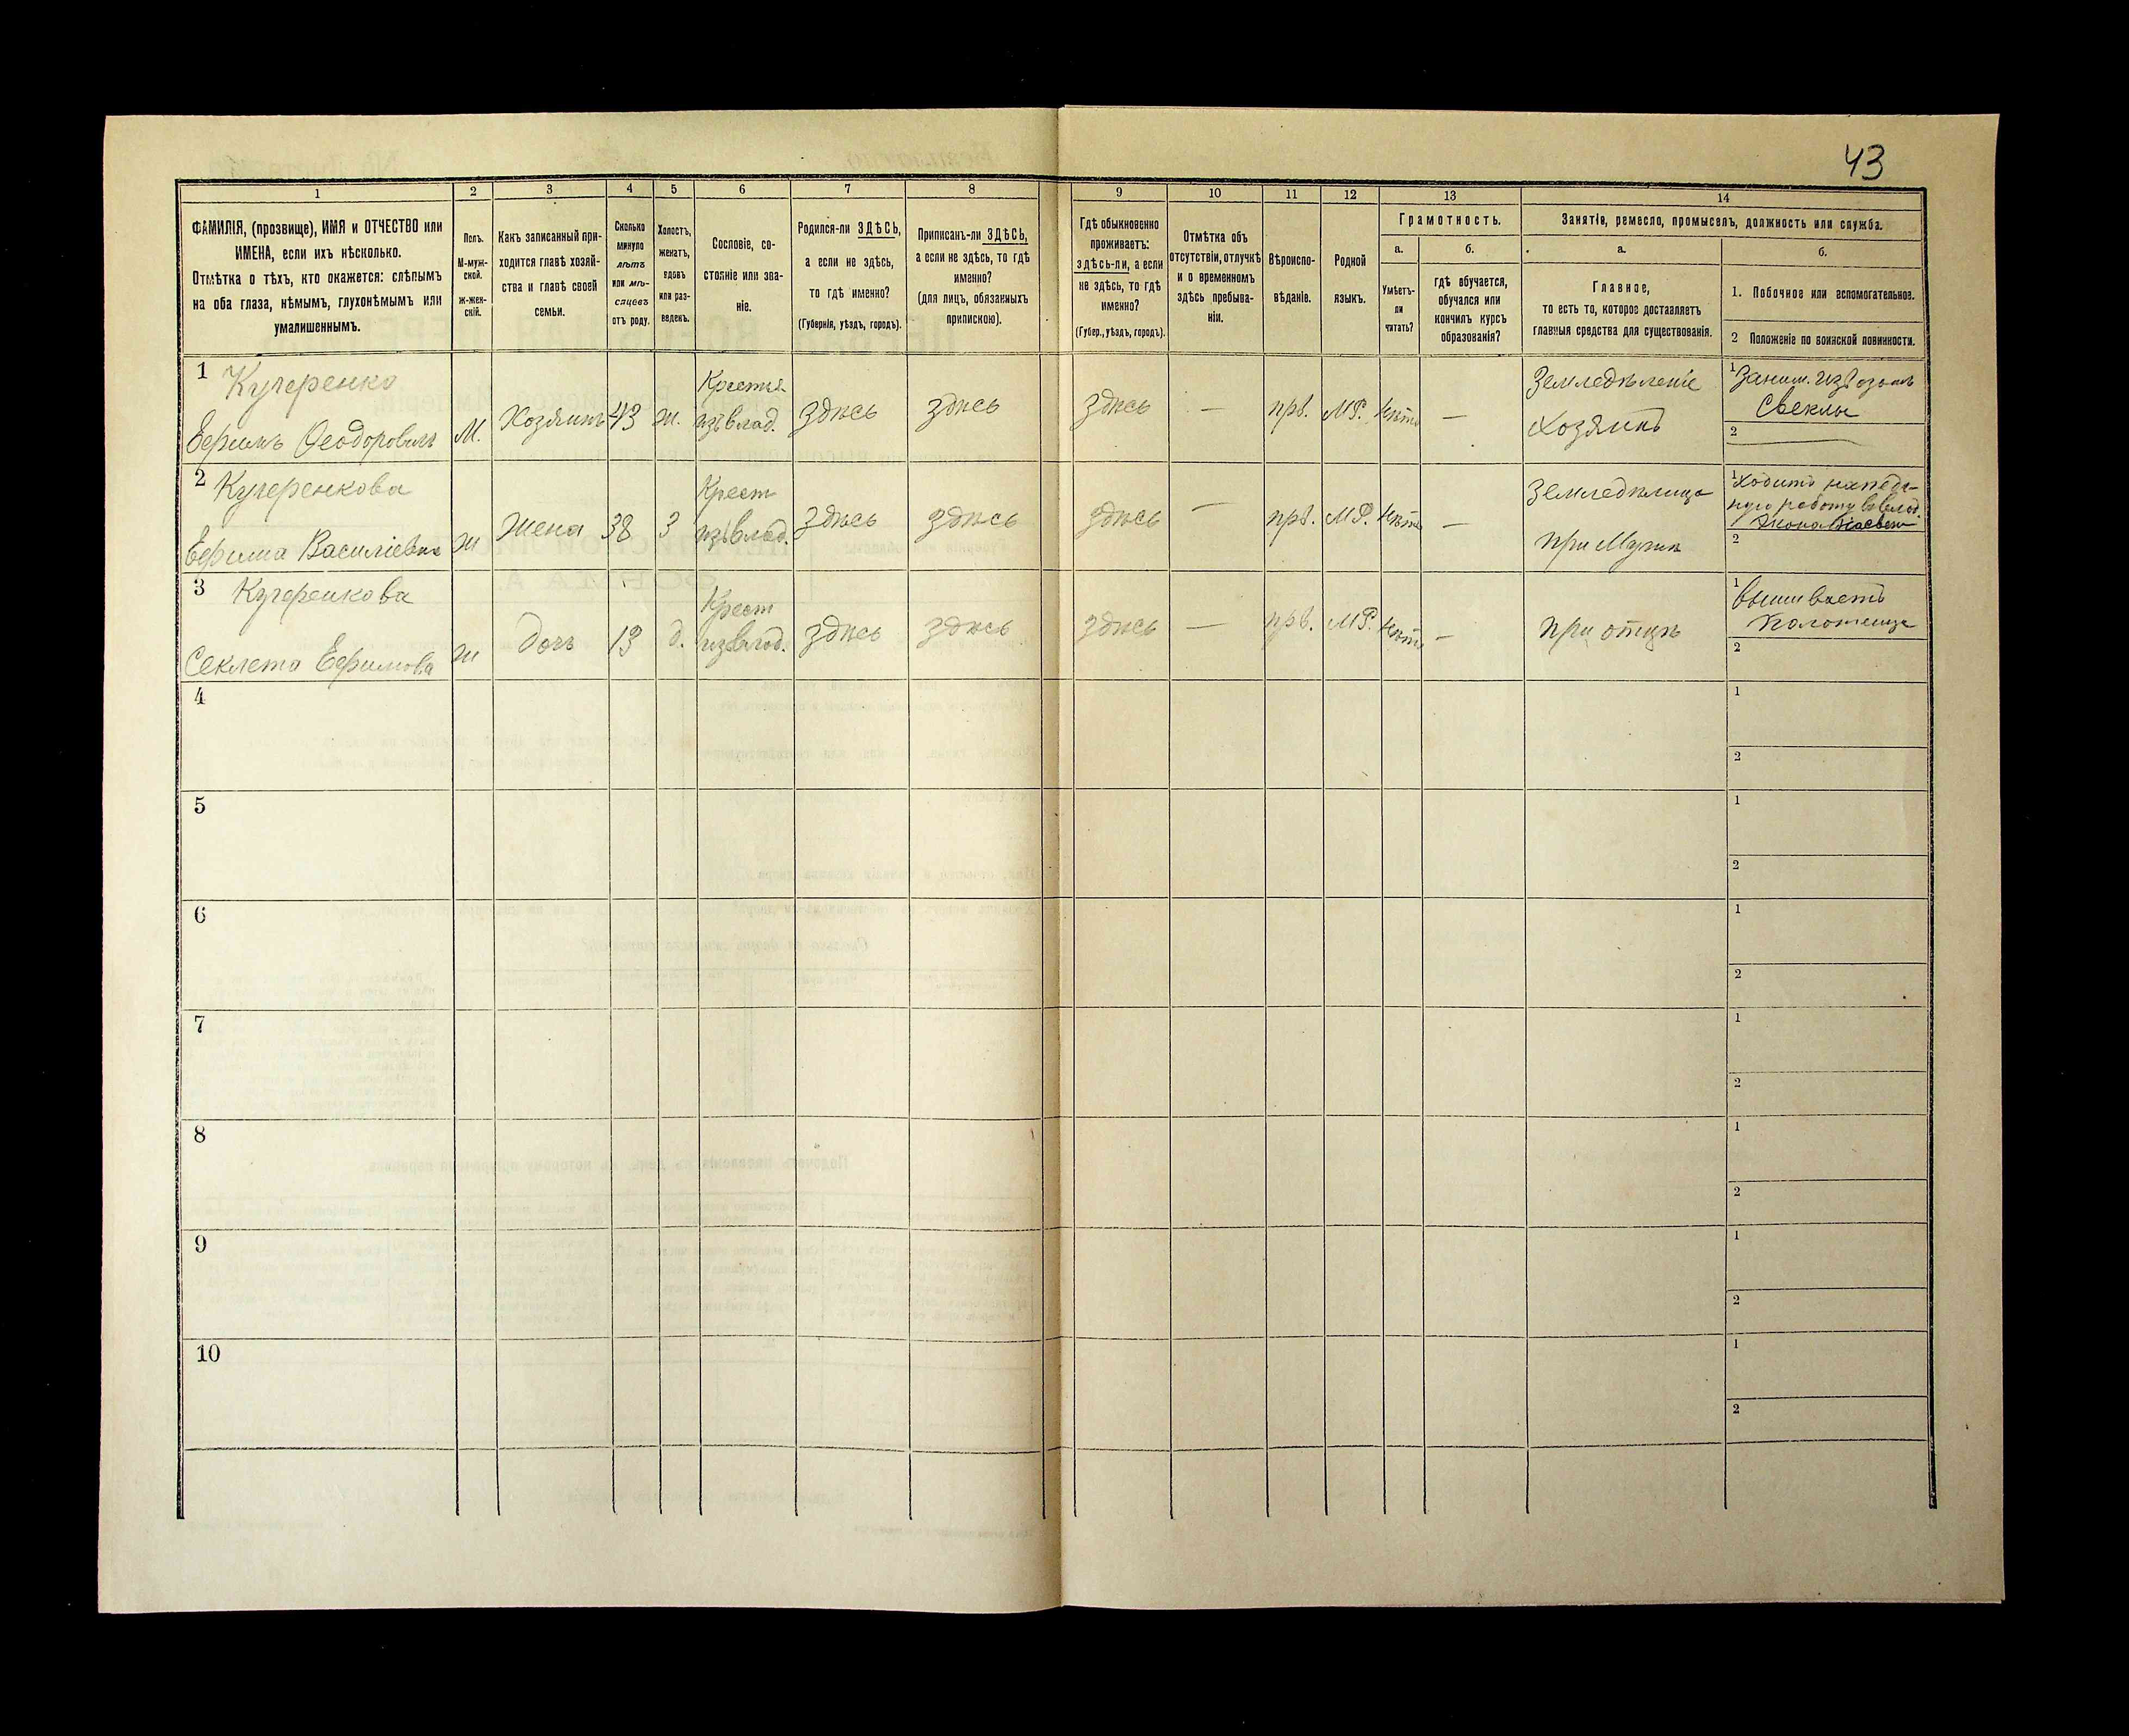 43
1
2
3
4
5
6
7
8
9
10
11
12
13
14
ФАМИЛІЯ, (прозвище), ИМЯ и ОТЧЕСТВО или
ИМЕНА, если ихъ нѣсколько.
Отмѣтка о тѣхъ, кто окажется: слѣпымъ
на оба глаза, нѣмымъ, глухонѣмымъ или
умалишеннымъ.
Полъ.
М-муж-
ской.
ж-жен-
скій.
Какъ записанный при-
ходится главѣ хозяй-
ства и главѣ своей
семьи.
Сколько
минуло
лѣтъ
или мѣ-
сяцевъ
отъ роду.
Холостъ,
женатъ,
вдовъ
или раз-
веденъ.
Сословіе, со-
стояніе или зва-
ніе.
Родился-ли ЗДѢСЬ,
а если не здѣсь,
то гдѣ именно?
(Губернія, уѣздъ, городъ).
Приписанъ-ли ЗДѢСЬ,
а если не здѣсь, то гдѣ
именно?
(для лицъ, обязанныхъ
припискою).
Гдѣ обыкновенно
проживаетъ:
здѣсь-ли, а если
не здѣсь, то гдѣ
именно?
(Губер., уѣздъ, городъ).
Отмѣтка объ
отсутствіи, отлучкѣ
и о временномъ
здѣсь пребыва-
ніи.
Вѣроиспо-
вѣданіе.
Родной
языкъ.
Грамотность.
а.
Умѣетъ-
ли
читать?
б.
гдѣ обучается,
обучался или
кончилъ курсъ
образованія?
Занятія, ремесло, промыселъ, должность или служба.
а.
Главное,
то есть то, которое доставляетъ
главныя средства для существованія.
б.
1. Побочное или вспомогательное.
2 Положеніе по воинской повинности.
1 Кучеренко
Ефимъ Феодоровичъ
М.
Хозяинъ
43
ж.
Крестья
изъ влад.
здѣсь
здѣсь
здѣсь
—
прв.
МР.
Нѣтъ
—
Земледѣленіе
Хозяинъ
1 Заним. извозомъ
Свеклы
2
2 Кучеренкова
Ефима Василіевна
ж
Жена
38
З
Крест
изъ влад.
здѣсь
здѣсь
здѣсь
—
прв.
МР.
Нѣтъ
—
Земледѣлица
при Мужѣ
1 Ходитъ
работу
2
3 Кучеренкова
Секлета Ефимова
ж
Дочь
13
д.
Крест
из влад.
здѣсь
здѣсь
здѣсь
—
прв.
МР.
Нѣтъ
—
при отцѣ
1 вышиваетъ
Полотенца
2
4
1
2
5
1
2
6
1
2
7
1
2
8
1
2
9
1
2
10
1
2